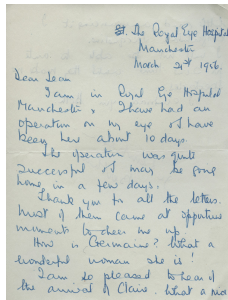 The Royal Eye Hospital
Manchester
March 21st 1956.
Dear Jean
I am in Royal Eye Hospital
Manchester. I have had an
operation on my eye & have
been here about 10 days.
The operation was quite
successful & may be going
home in a few days.
Thank you for all the letters.
Most of them came at opportune
moments to cheer me up.
How is Germaine? What a
wonderful woman she is!
I am so pleased to hear of
the arrival of Claire. What a nice